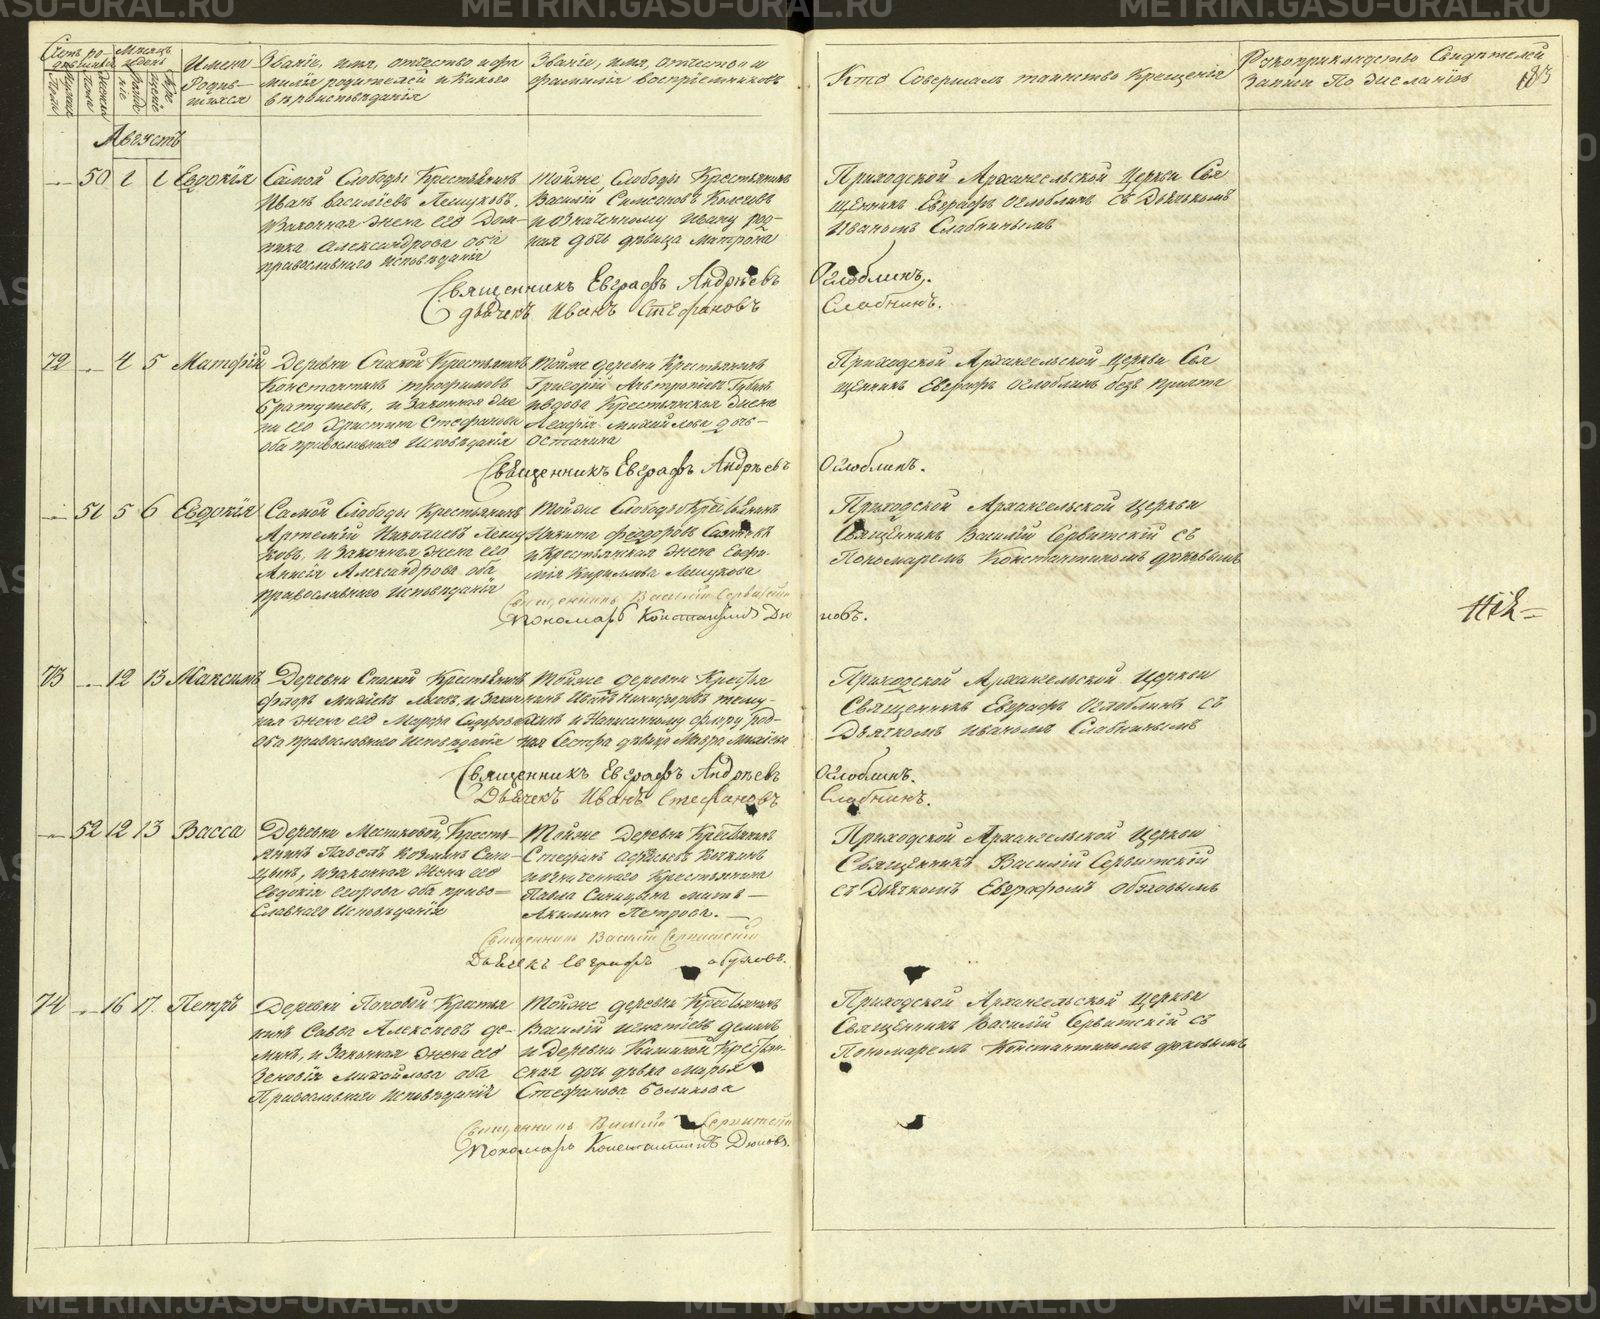 METRIKI.GASU-URAL.RU
Счетъ родившихся
Мѣсяцъ и день
Имена родившихся
Званіе, имя, отчество и фамилія родителей и какого вѣроисповѣданія
Званіе, имя, отчество и фамилія воспріемниковъ
Кто совершалъ таинство крещенія
Рукоприкладство свидѣтелей записи по желанію
183
Августъ
50 1 1 Евдокія
Самой Слободы Крестьянинъ
Иванъ Васильевъ Лешуковъ,
и законная жена его Дом-
ника Александрова оба
православнаго исповѣданія
Тойже Слободы Крестьянинъ
Василій Симеоновъ
и означенному Ивану род-
ная дочь дѣвица Матрона
Приходской Архангельской Церкви Свя
щенникъ Евграфъ Оглоблинъ съ Дьячкомъ
Иваномъ Слабнинымъ
Священникъ Евграфъ Андрѣевъ Оглоблинъ.
Дьячекъ Иванъ Стефановъ Слабнинъ.
72 4 5 Матфій
Деревни Спаской Крестьянинъ
Константинъ Трофимовъ
Братушевъ, и законная же
на его Христина Стефанова
оба православнаго исповѣданія
Тойже деревни Крестьянинъ
Григорій Губинъ
и вдова Крестьянская жена
Агафія Михайлова дочь
Останина
Приходской Архангельской Церкви Свя
щенникъ Евграфъ Оглоблинъ безъ причта
Священникъ Евграфъ Андрѣевъ Оглоблинъ.
51 5 6 Евдокія
Самой Слободы Крестьянинъ
Артемій Николаевъ Лешу
ковъ, и законная жена его
Анисія Александрова оба
православнаго исповѣданія
Тойже Слободы Крестьянинъ
Никита Феодоровъ
и Крестьянская жена Евфи-
мія Кирилова Лешукова
Приходской Архангельской Церкви
Священникъ Василій Сервитскій съ
Пономаремъ Константиномъ
Священникъ Василій Сервитскій
Пономарь Константинъ Дю новъ.
73 12 13 Максимъ
Деревни Спаской Крестьянинъ
Фларъ Михѣевъ и закон
ная жена его Марфа
оба православнаго исповѣданія
Тойже деревни Крестья
нинъ Иванъ Никифоровъ
и написанному Флору род-
ная сестра дѣвка Мавра Михѣева
Приходской Архангельской Церкви
Священникъ Евграфъ Оглоблинъ съ
Дьячкомъ Иваномъ Слабнинымъ
Священникъ Евграфъ Андрѣевъ Оглоблинъ.
Дьячекъ Иванъ Стефановъ Слабнинъ.
52 12 13 Васса
Деревни Крестья-
нинъ Павелъ Козминъ Сини-
цынъ, и законная жена его
Евдокія Егорова оба право-
славнаго исповѣданія
Тойже Деревни Крестьянинъ
Стефанъ
и означеннаго Крестьянина
Павла Синицына мать
Акилина Петрова.
Приходской Архангельской Церкви
Священникъ Василій Сервитскій
съ Дьячкомъ Евграфомъ Обуховымъ
Священникъ Василій Сервитскій
Дьячекъ Евграфъ Обуховъ.
74 16 17 Петръ
Деревни Поповой Крестья
нинъ Савва Алексѣевъ Де-
минъ, и законная жена его
Зеновія Михайлова оба
Православнаго исповѣданія
Тойже деревни Крестьянинъ
Василій Игнатіевъ Деминъ
и Деревни Крестьян-
ская дочь дѣвка Марья
Стефанова
Приходской Архангельской Церкви
Священникъ Василій Сервитскій съ
Пономаремъ Константиномъ
Священникъ Василій Сервитскій
Пономарь Константинъ Дюновъ.
METRIKI.GASU-URAL.RU